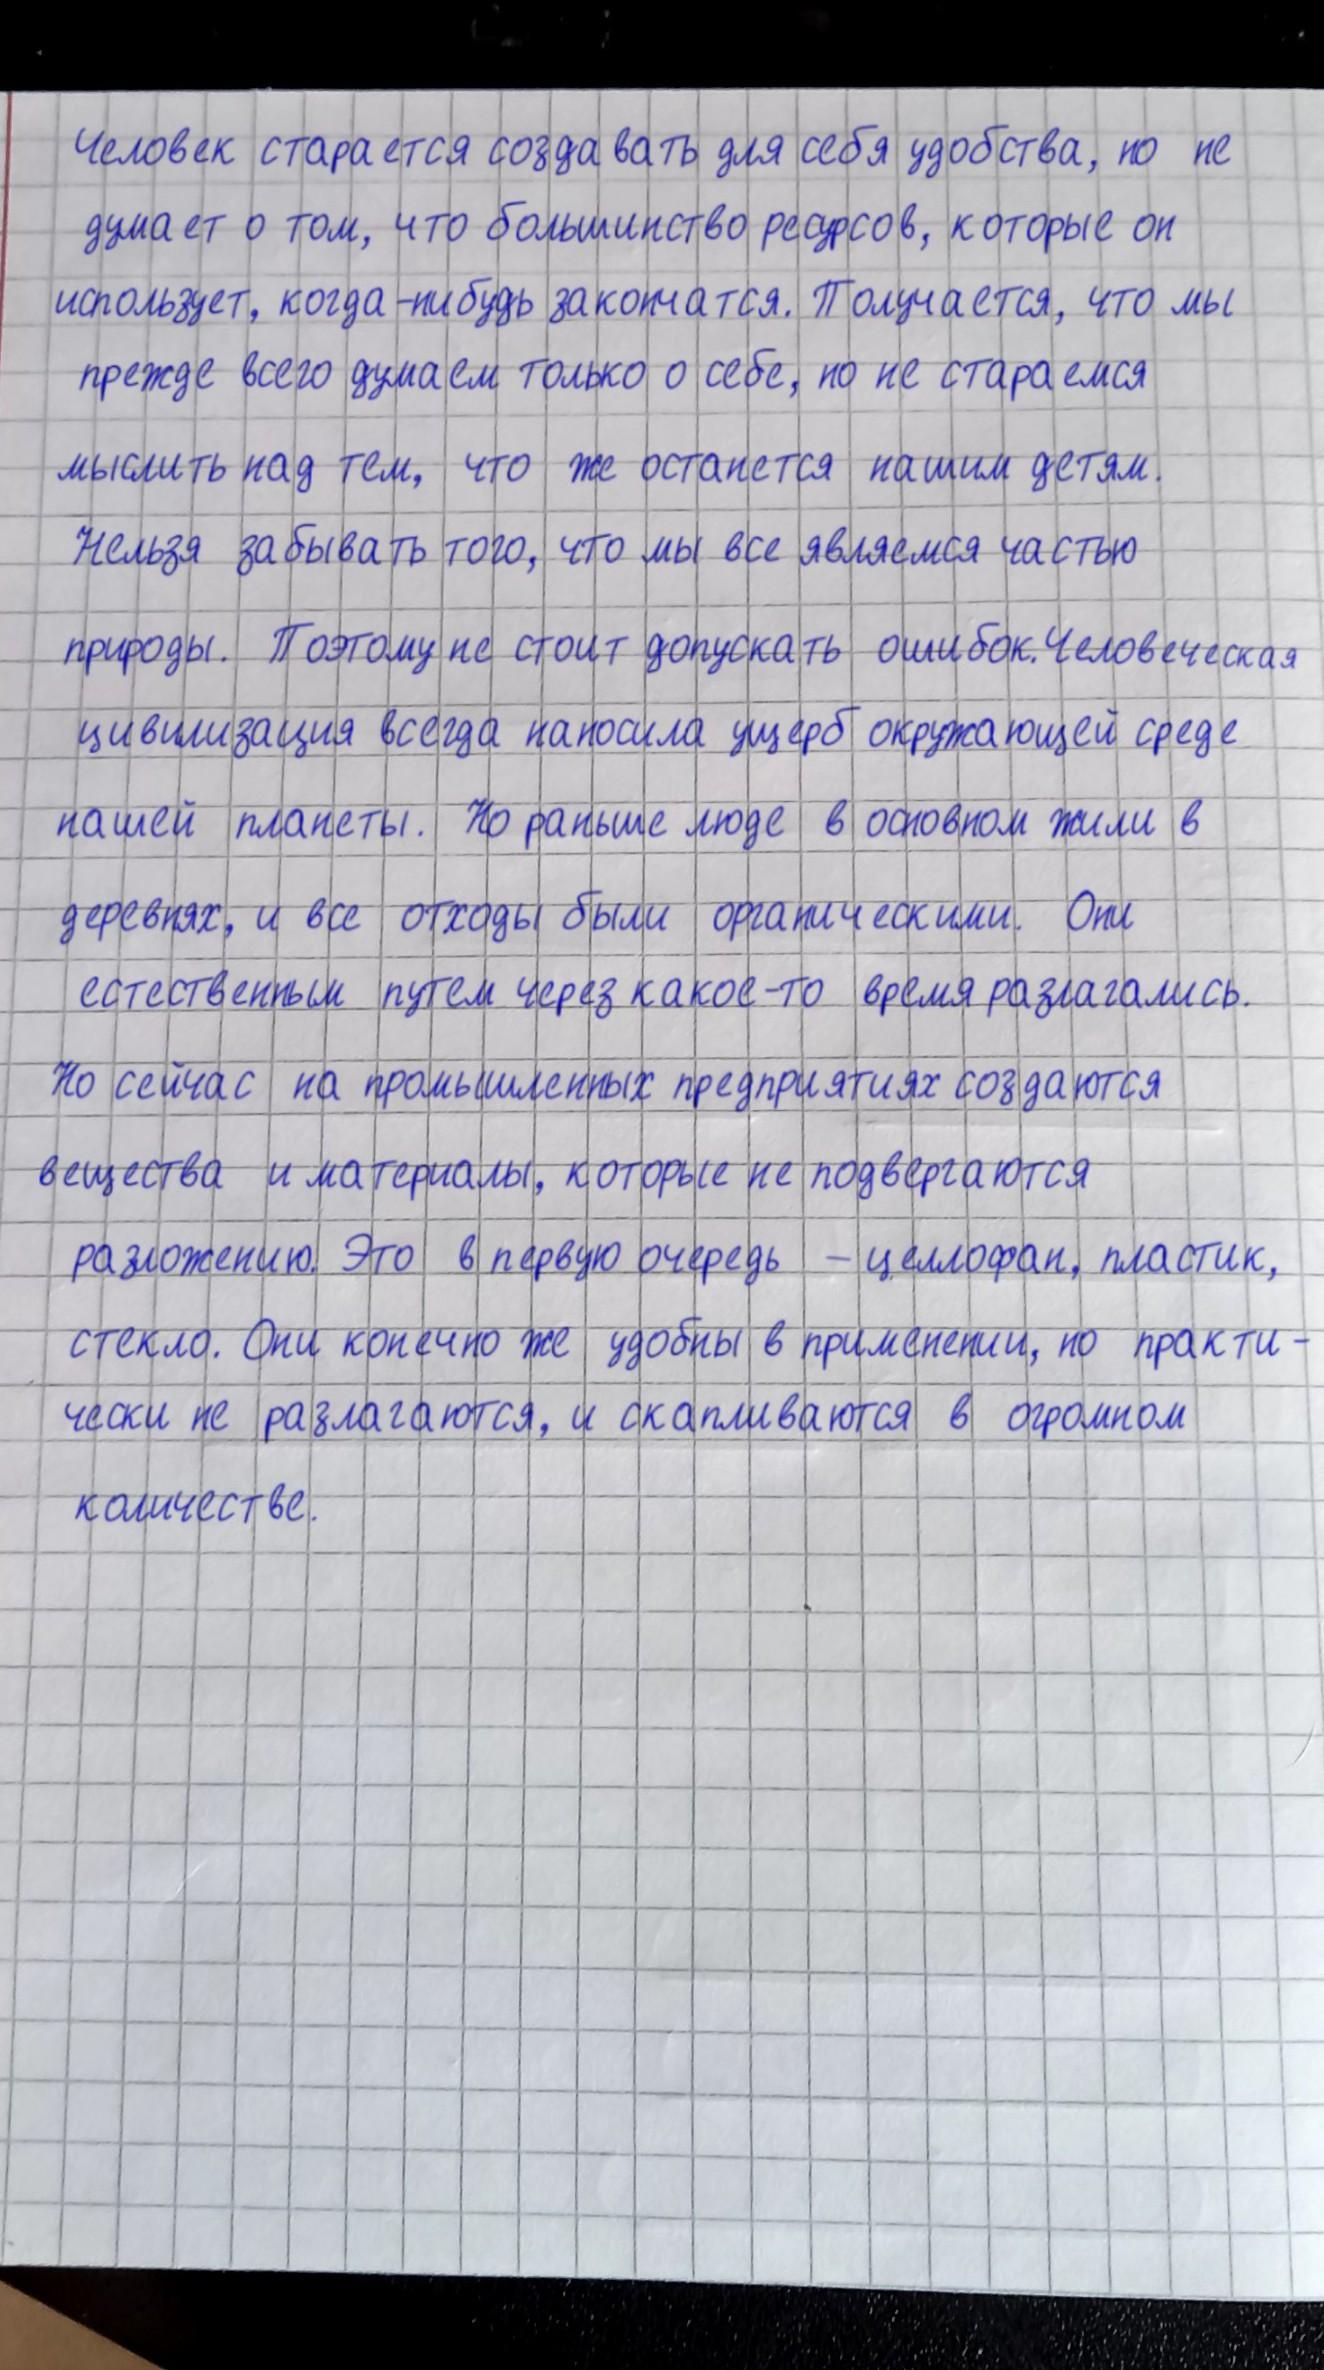 Человек старается создавать для себя удобства, но не
думает о том, что большинство ресурсов, которые он
использует, когда-нибудь закончатся. Получается, что мы
прежде всего думаем только о себе, но не стараемся
мыслить над тем, что же останется нашим детям.
Нельзя забывать того, что мы все являемся частью
природы. Поэтому не стоит допускать ошибок. Человеческая
цивилизация всегда наносила ущерб окружающей среде
нашей планеты. Но раньше люде в основном жили в
деревнях, и все отходы были органическими. Они
естественным путем через какое-то время разлагались.
Но сейчас на промышленных предприятиях создаются
вещества и материалы, которые не подвергаются
разложению. Это в первую очередь - целлофан, пластик,
стекло. Они конечно же удобны в применении, но практи-
чески не разлагаются, и скапливаются в огромном
количестве.